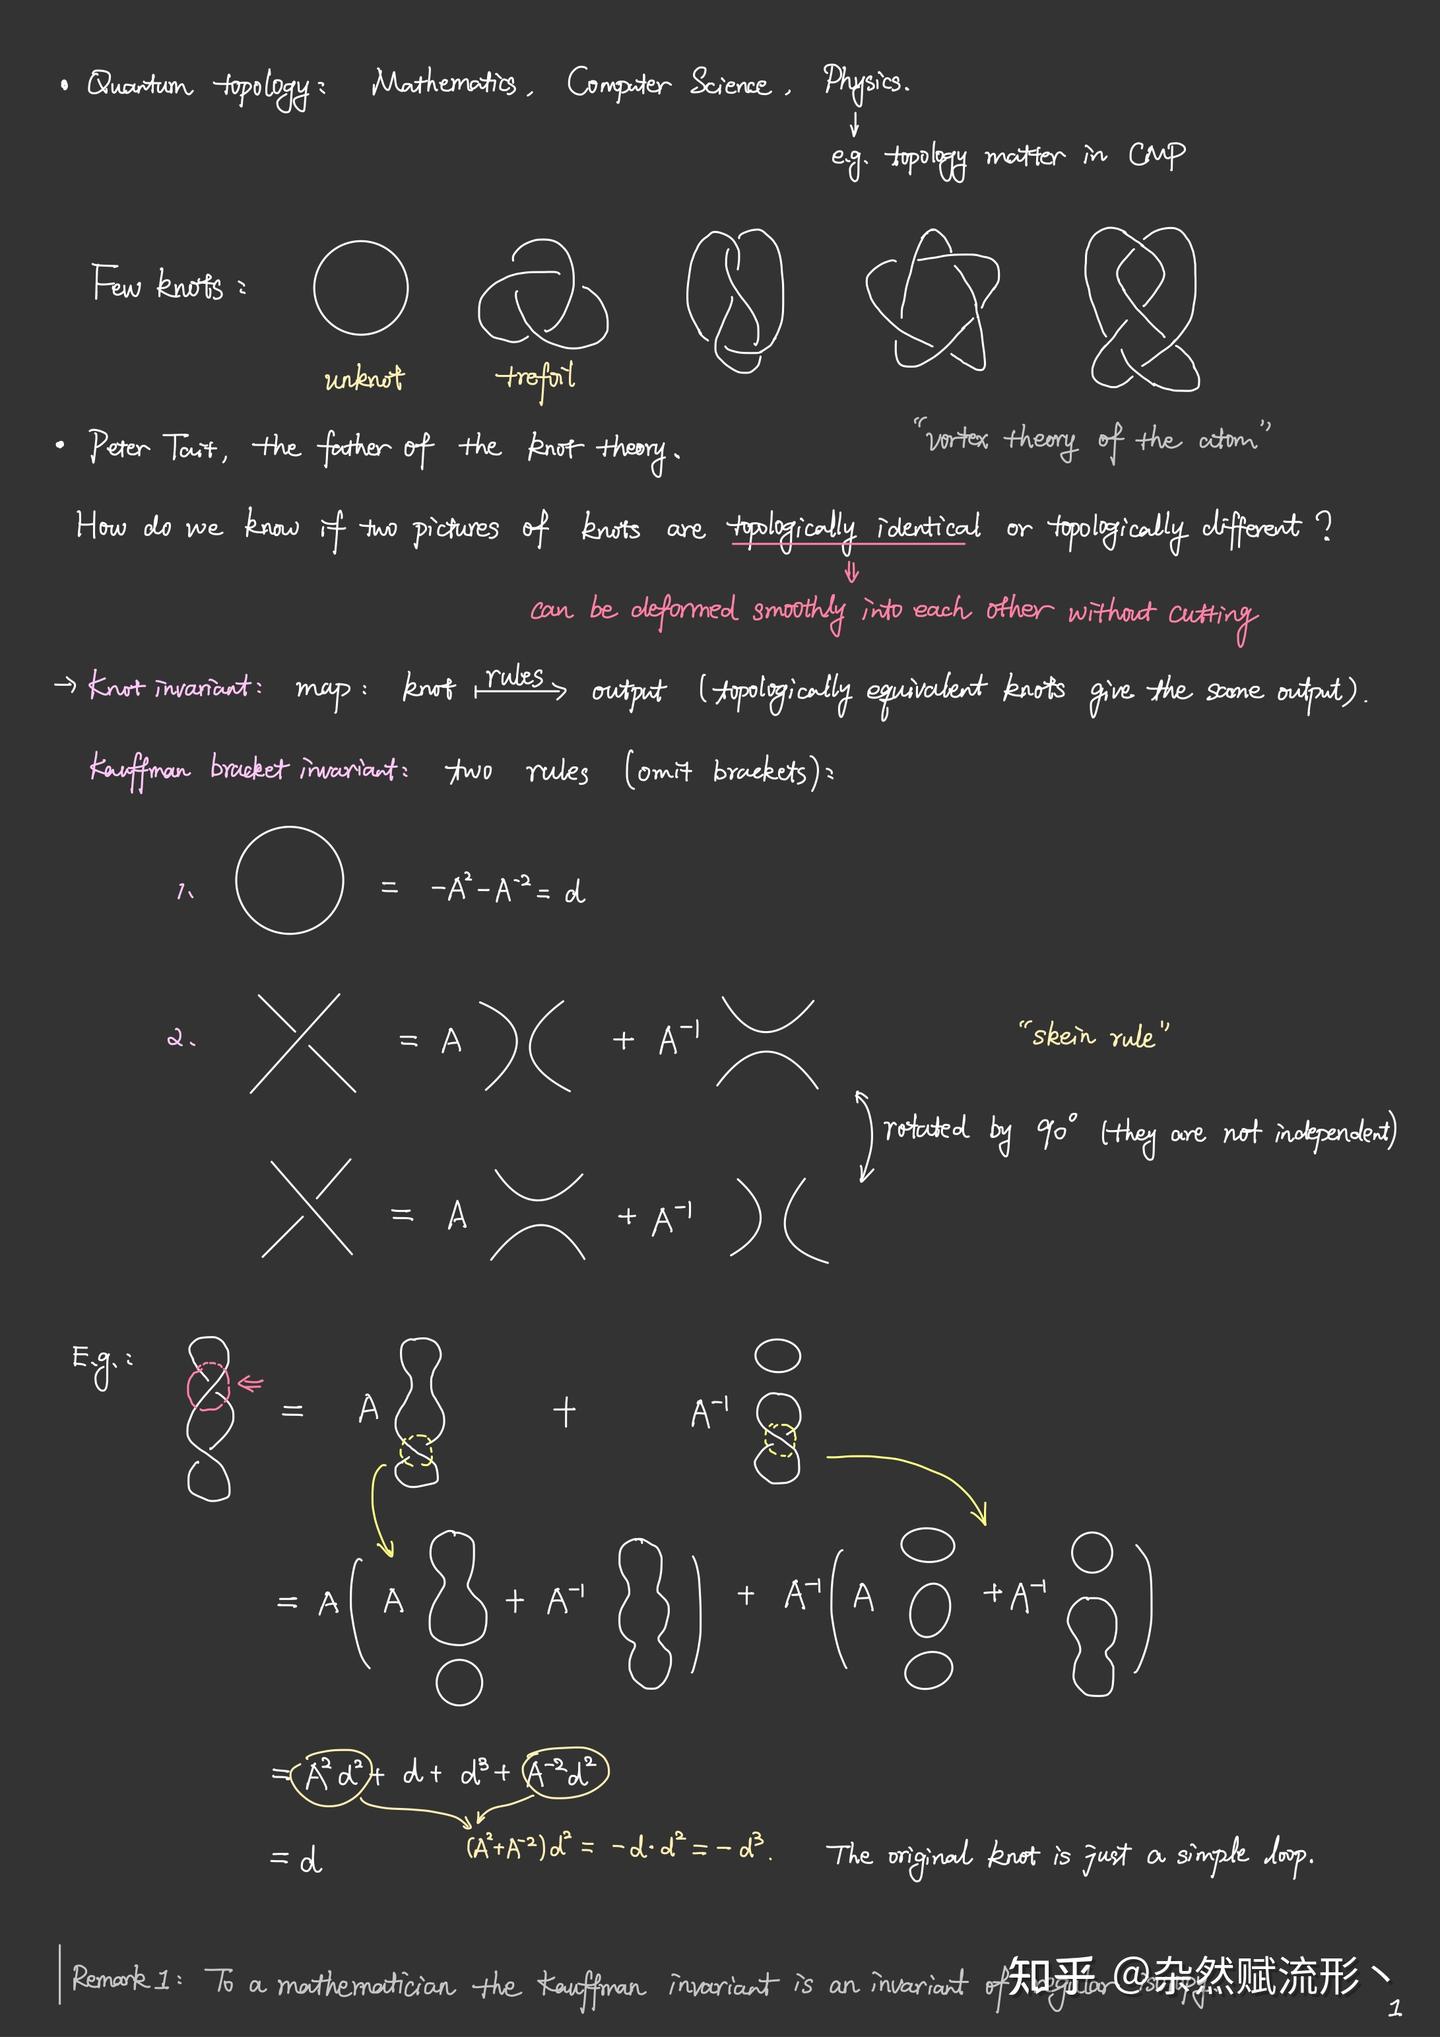 • Quantum topology: Mathematics, Computer Science, Physics.
↓
e.g. topology matter in CMP
Few knots:
unknot
trefoil
"vortex theory of the atom"
• Peter Tait, the father of the knot theory.
How do we know if two pictures of knots are topologically identical or topologically different?
⇓
can be deformed smoothly into each other without cutting
→ Knot invariant: map: knot ⟼ rules output (topologically equivalent knots give the same output).
Kauffman bracket invariant: two rules (omit brackets):
1. = -A² - A⁻² = d
2. = A + A⁻¹ "skein rule"
rotated by 90° (they are not independent)
= A + A⁻¹
E.g.: = A + A⁻¹
= A ( A + A⁻¹ ) + A⁻¹ ( A + A⁻¹ )
= A²d² + d + d³ + A⁻²d²
= d (A²+A⁻²)d² = -d·d² = -d³. The original knot is just a simple loop.
Remark 1: To a mathematician the Kauffman invariant is an invariant of
知乎 @杂然赋流形丶
1